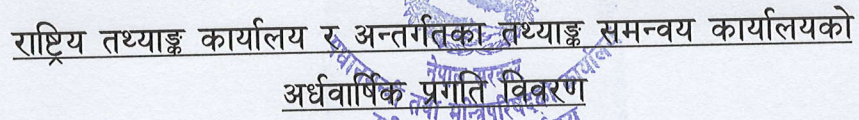 राष्ट्रिय तथ्याङ्क कार्यालय र अन्तर्गतका तथ्याङ्क समन्वय कार्यालयको
अर्धवार्षिक प्रगति विवरण
नेपाल सरकार